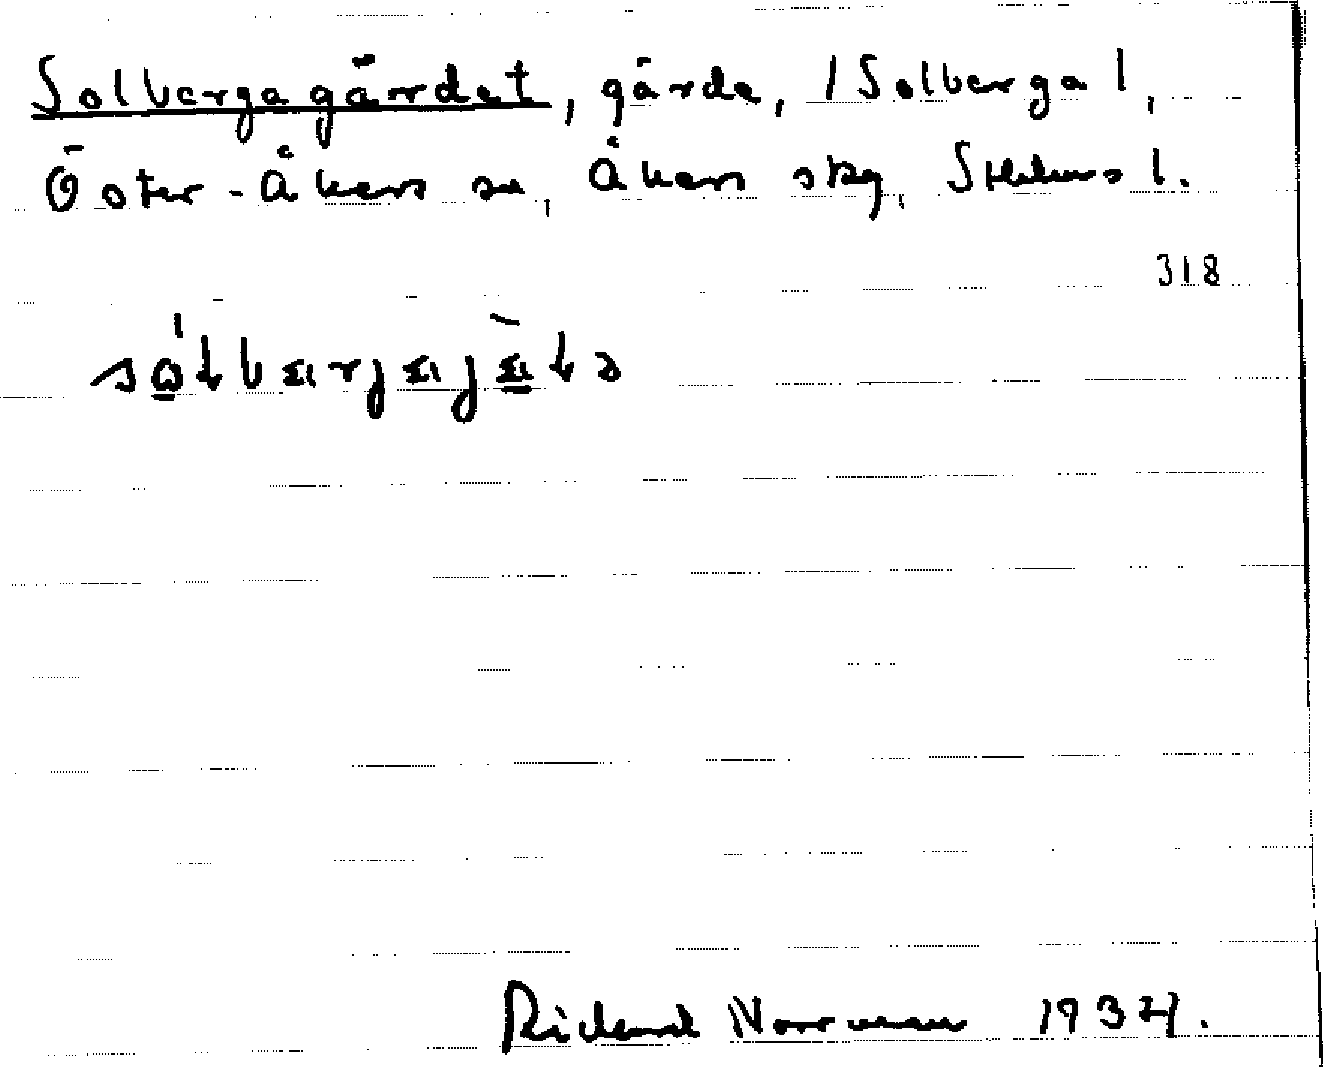 Solbergagärdet, gärde, /Solberga/,
Öster-Åkers sn, Åkers skg, Sthlms l.
318
Rickard Norrman 1937.